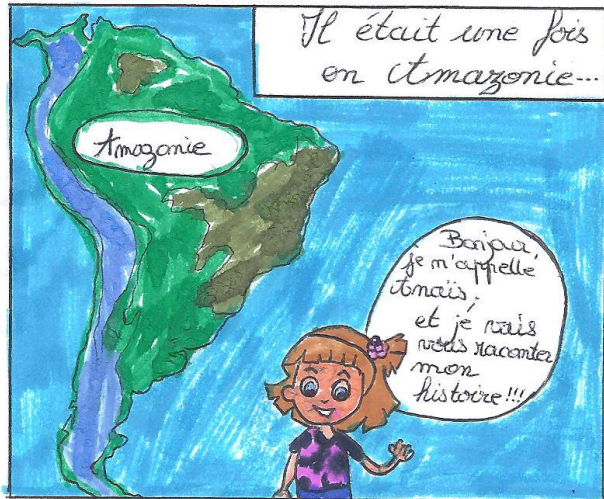 Il était une fois
en Amazonie...
Amazonie
Bonjour,
je m'appelle
Anaïs,
et je vais
vous raconter
mon
histoire!!!